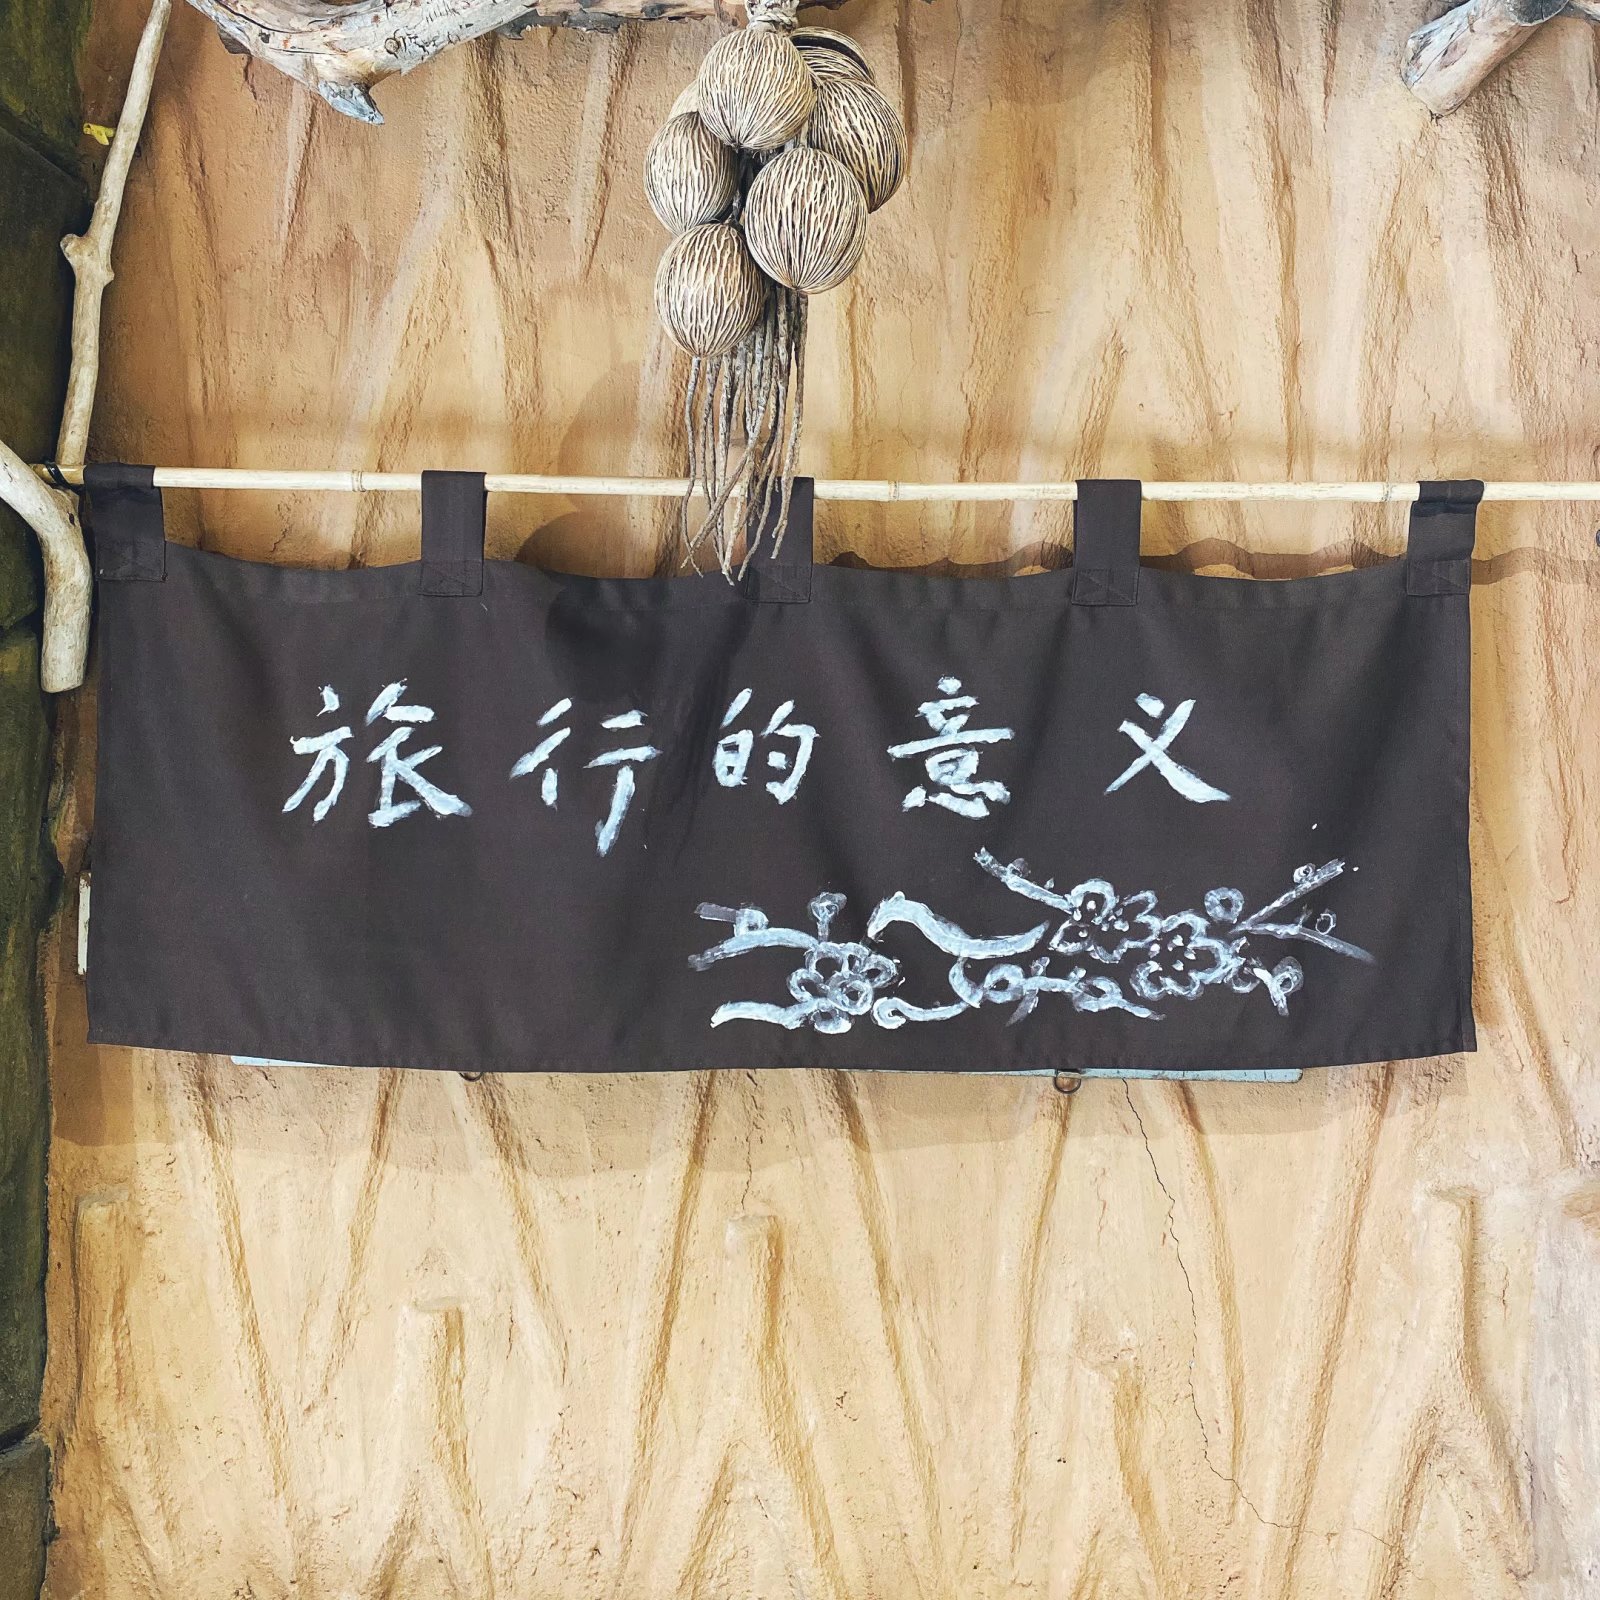 旅行的意义